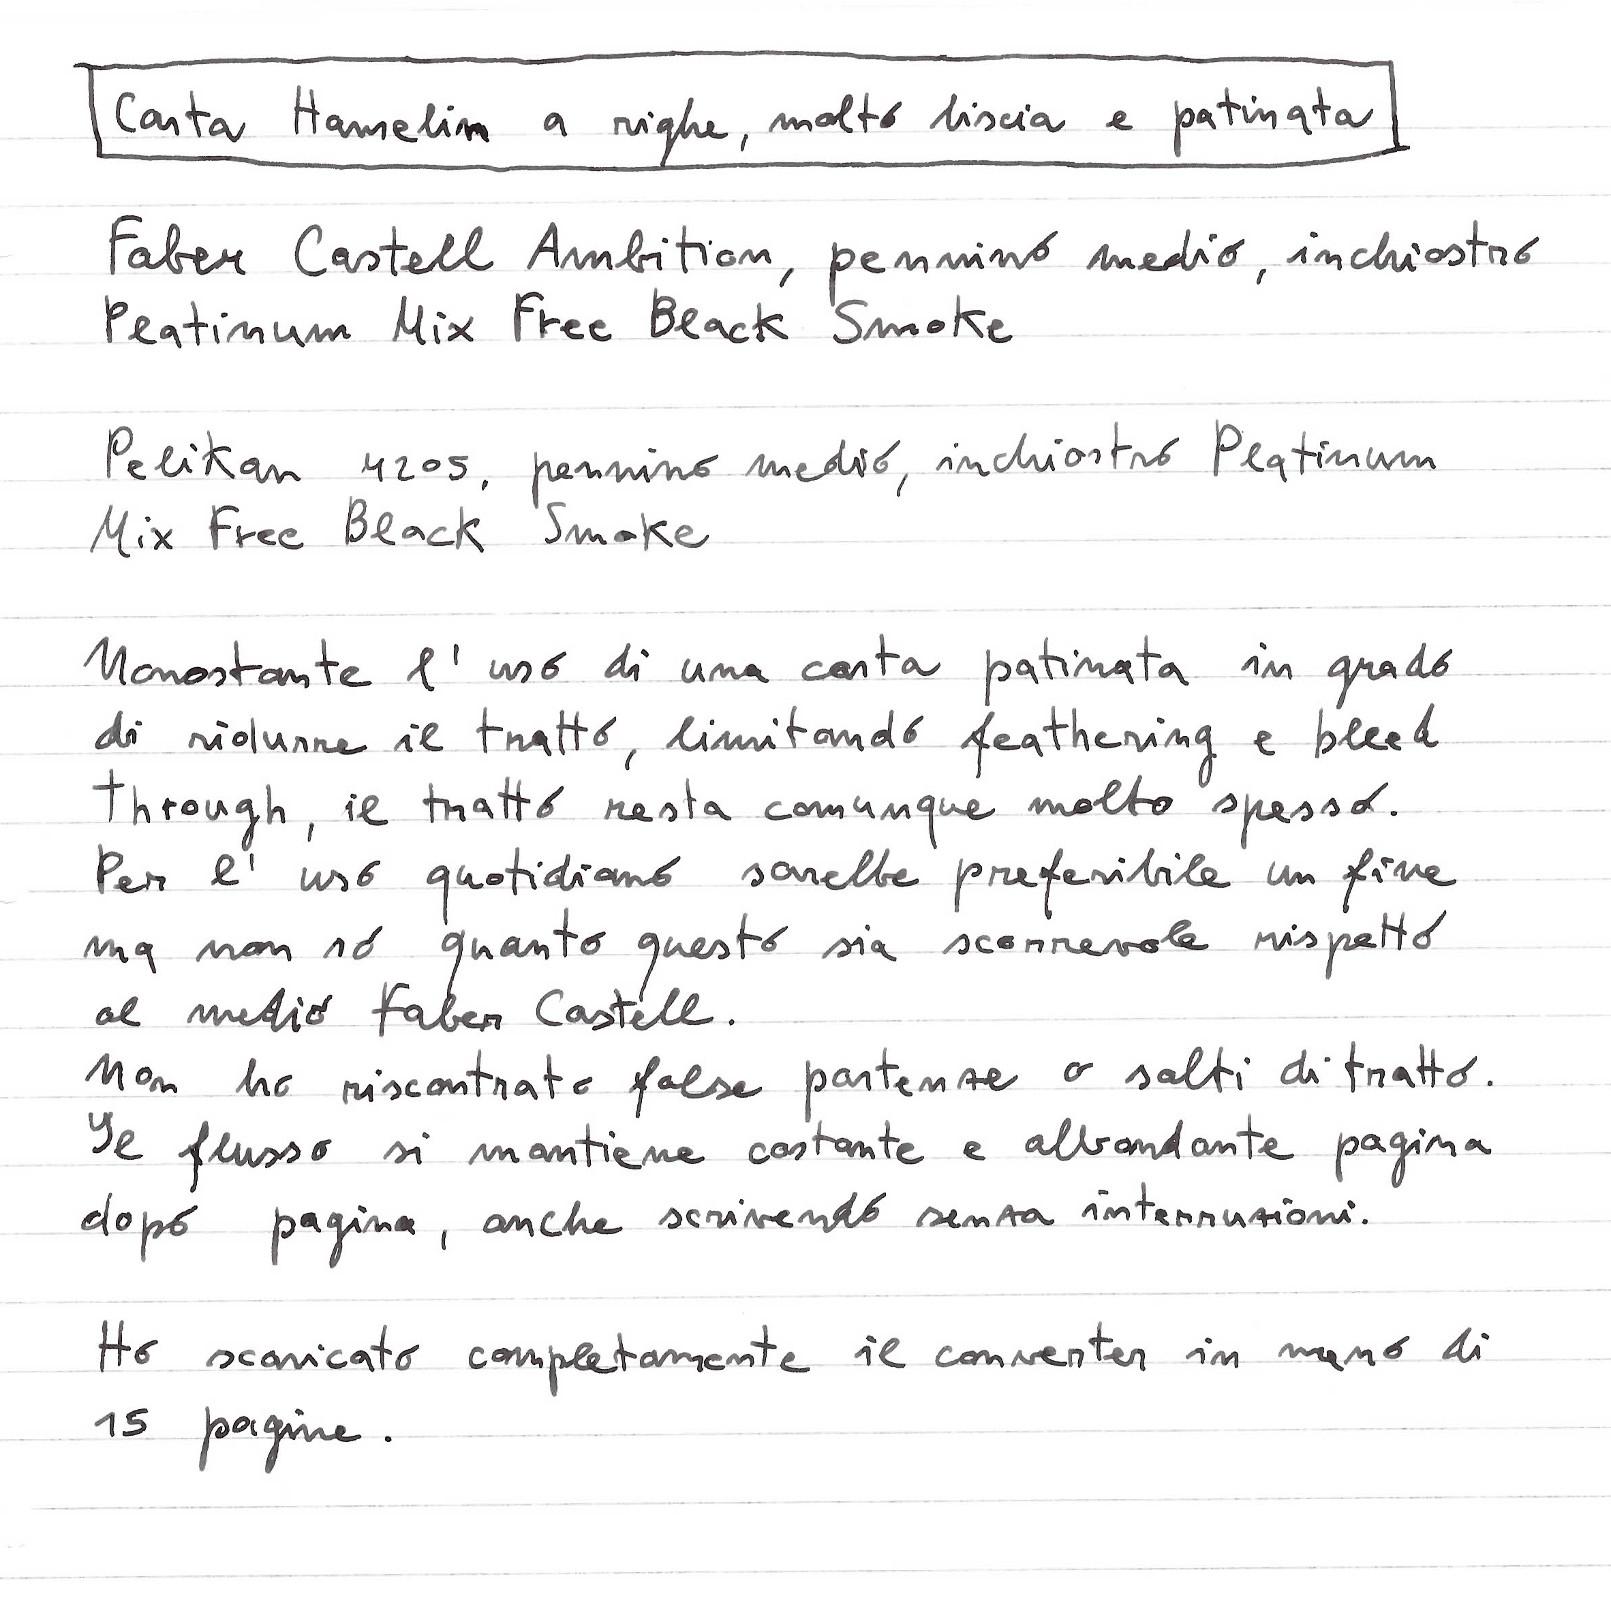 Carta Hamelin a righe, molto liscia e patinata
Faber Castell Ambition, pennino medio, inchiostro
Platinum Mix Free Black Smoke
Pelikan 4205, pennino medio, inchiostro Platinum
Mix Free Black Smoke
Nonostante l'uso di una carta patinata in grado
di ridurre il tratto, limitando feathering e bleed
through, il tratto resta comunque molto spesso.
Per l'uso quotidiano sarebbe preferibile un fine
ma non so quanto questo sia scorrevole rispetto
al medio Faber Castell.
Non ho riscontrato false partenze o salti di tratto.
Il flusso si mantiene costante e abbondante pagina
dopo pagina, anche scrivendo senza interruzioni.
Ho scaricato completamente il converter in meno di
15 pagine.